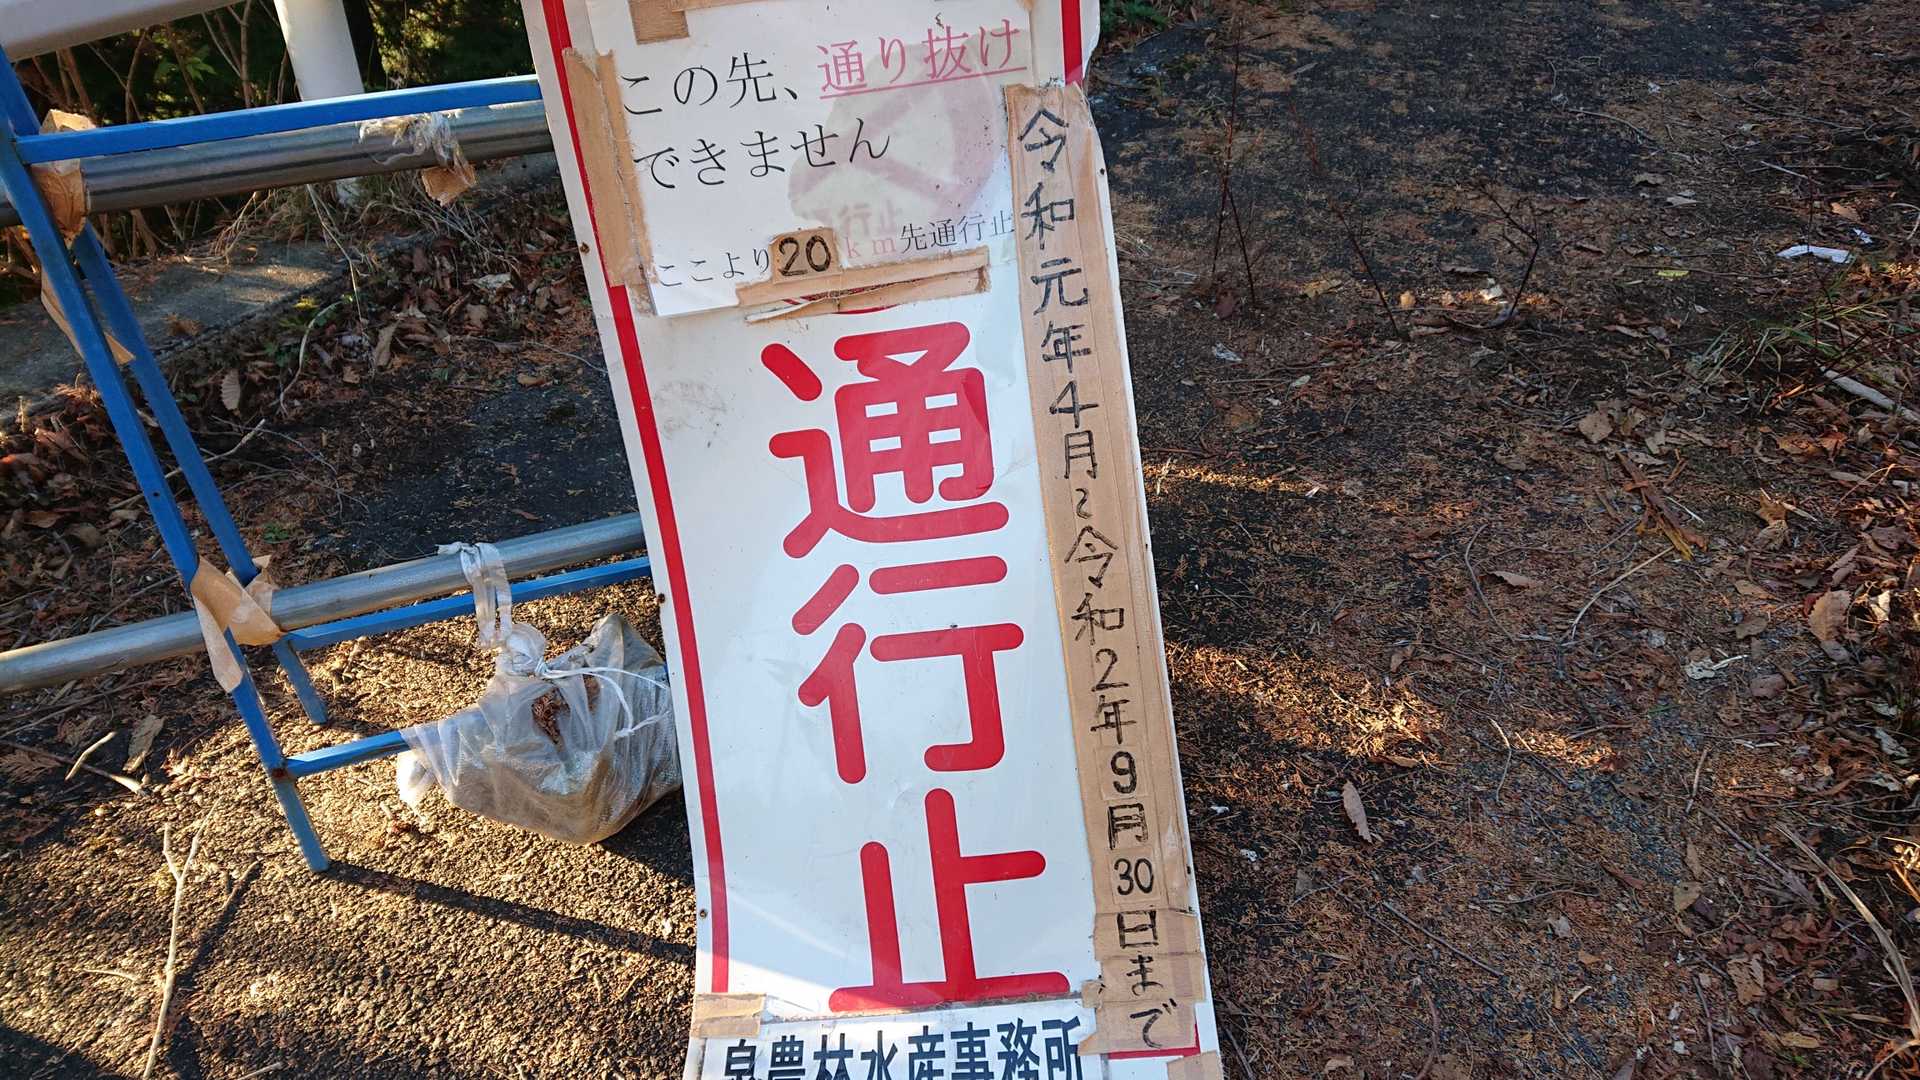 この先、通り抜け
できません
ここより20km先通行止
令和元年4月~令和2年9月30日まで
通行止
農林水産事務所